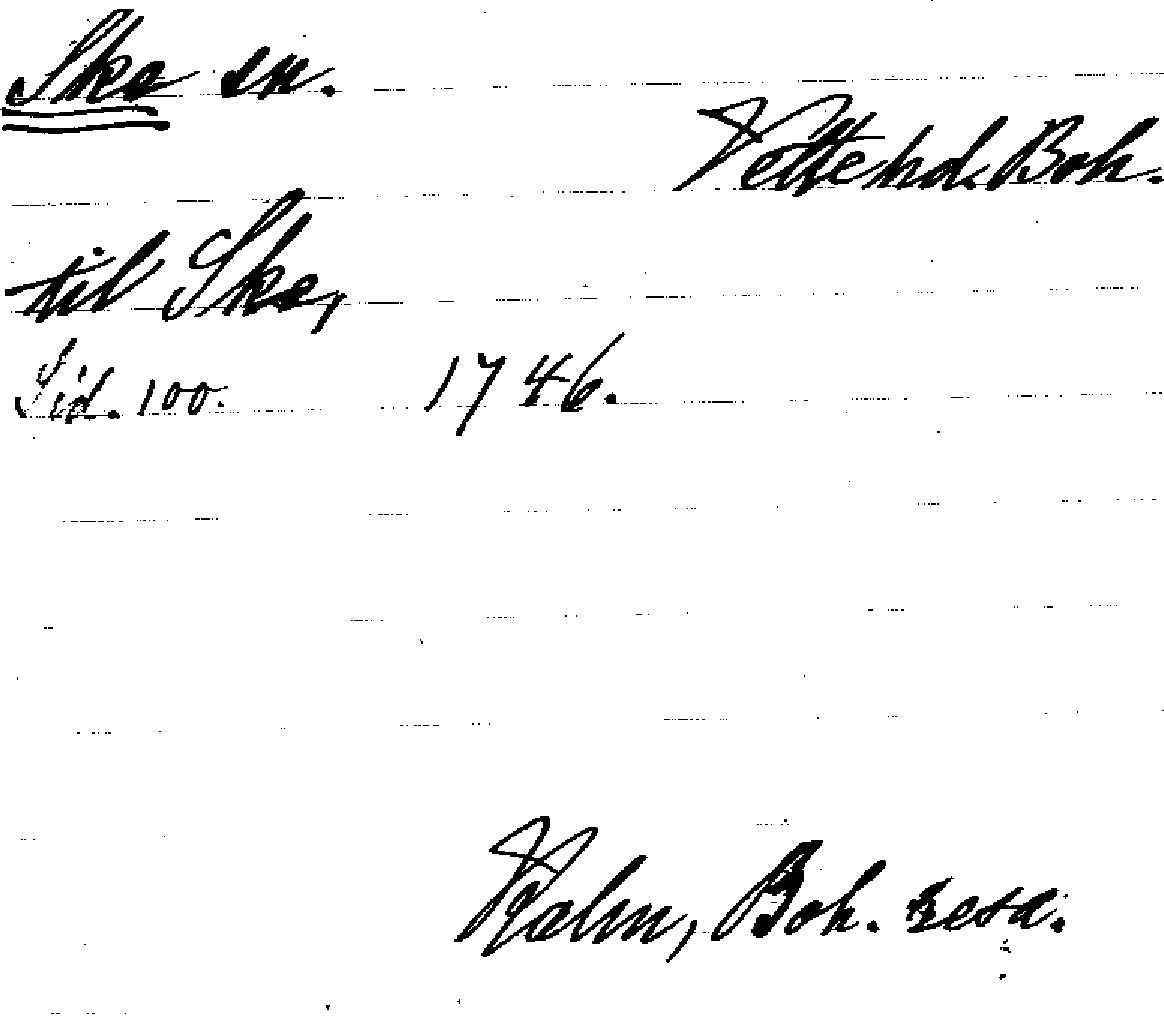 Ske sn.
Vette hd. Boh.
til Ske,
Sid. 100. 1746.
Kalm, Boh. resa.